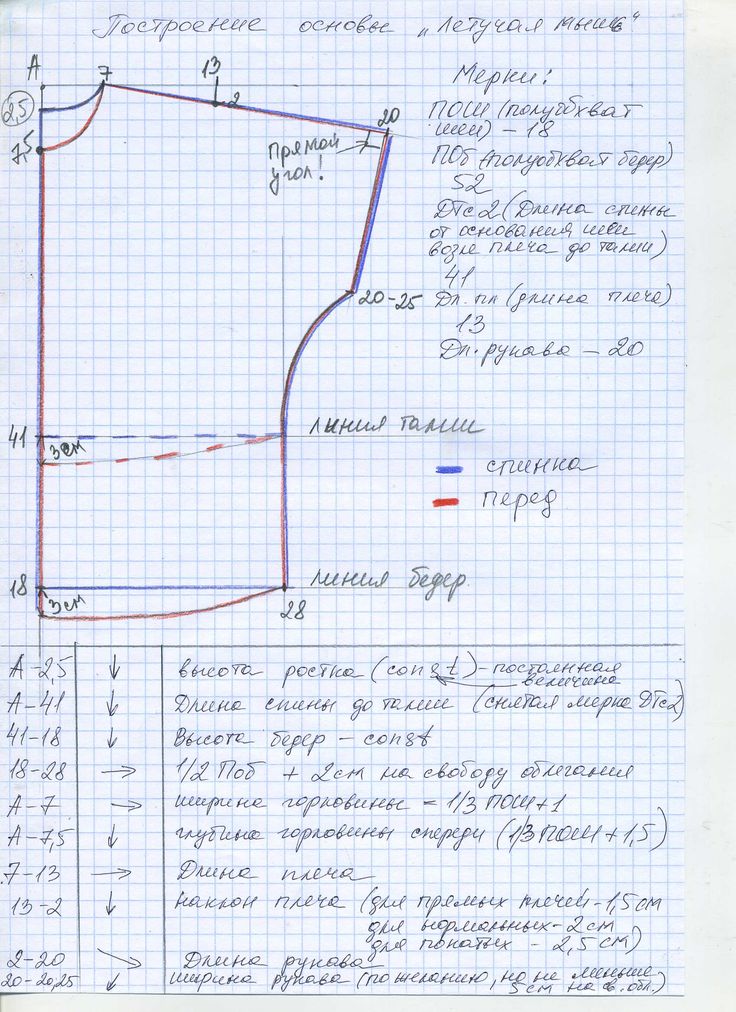 Построение основы „Летучая мышь"
А
7
13
2
20
2,5
7,5
Прямой
угол!
20-25
41
3см
линия талии
спинка
перед
18
3см
линия бедер.
28
Мерки:
ПОШ (полуобхват
шеи) – 18
ПОб (полуобхват бедер)
52
ДТс2 (Длина спины
от основания шеи
возле плеча до талии)
41
Дл. пл (длина плеча)
13
Дл. рукава – 20
А-2,5 ↓ высота ростка (const) - постоянная
величина
А-41 ↓ Длина спины до талии (снятая мерка ДТс2)
41-18 ↓ Высота бедер – const
18-28 → 1/2 Поб + 2см на свободу облегания
А-7 → ширина горловины = 1/3 ПОШ+1
А-7,5 ↓ глубина горловины спереди (1/3 ПОШ + 1,5)
7-13 → Длина плеча
13-2 ↓ наклон плеча (для прямых плечей - 1,5см
для нормальных - 2см
для покатых - 2,5см)
2-20 ↘ Длина рукава
20-20,25 ↓ ширина рукава (по желанию, но не меньше
5см на св. обл.)